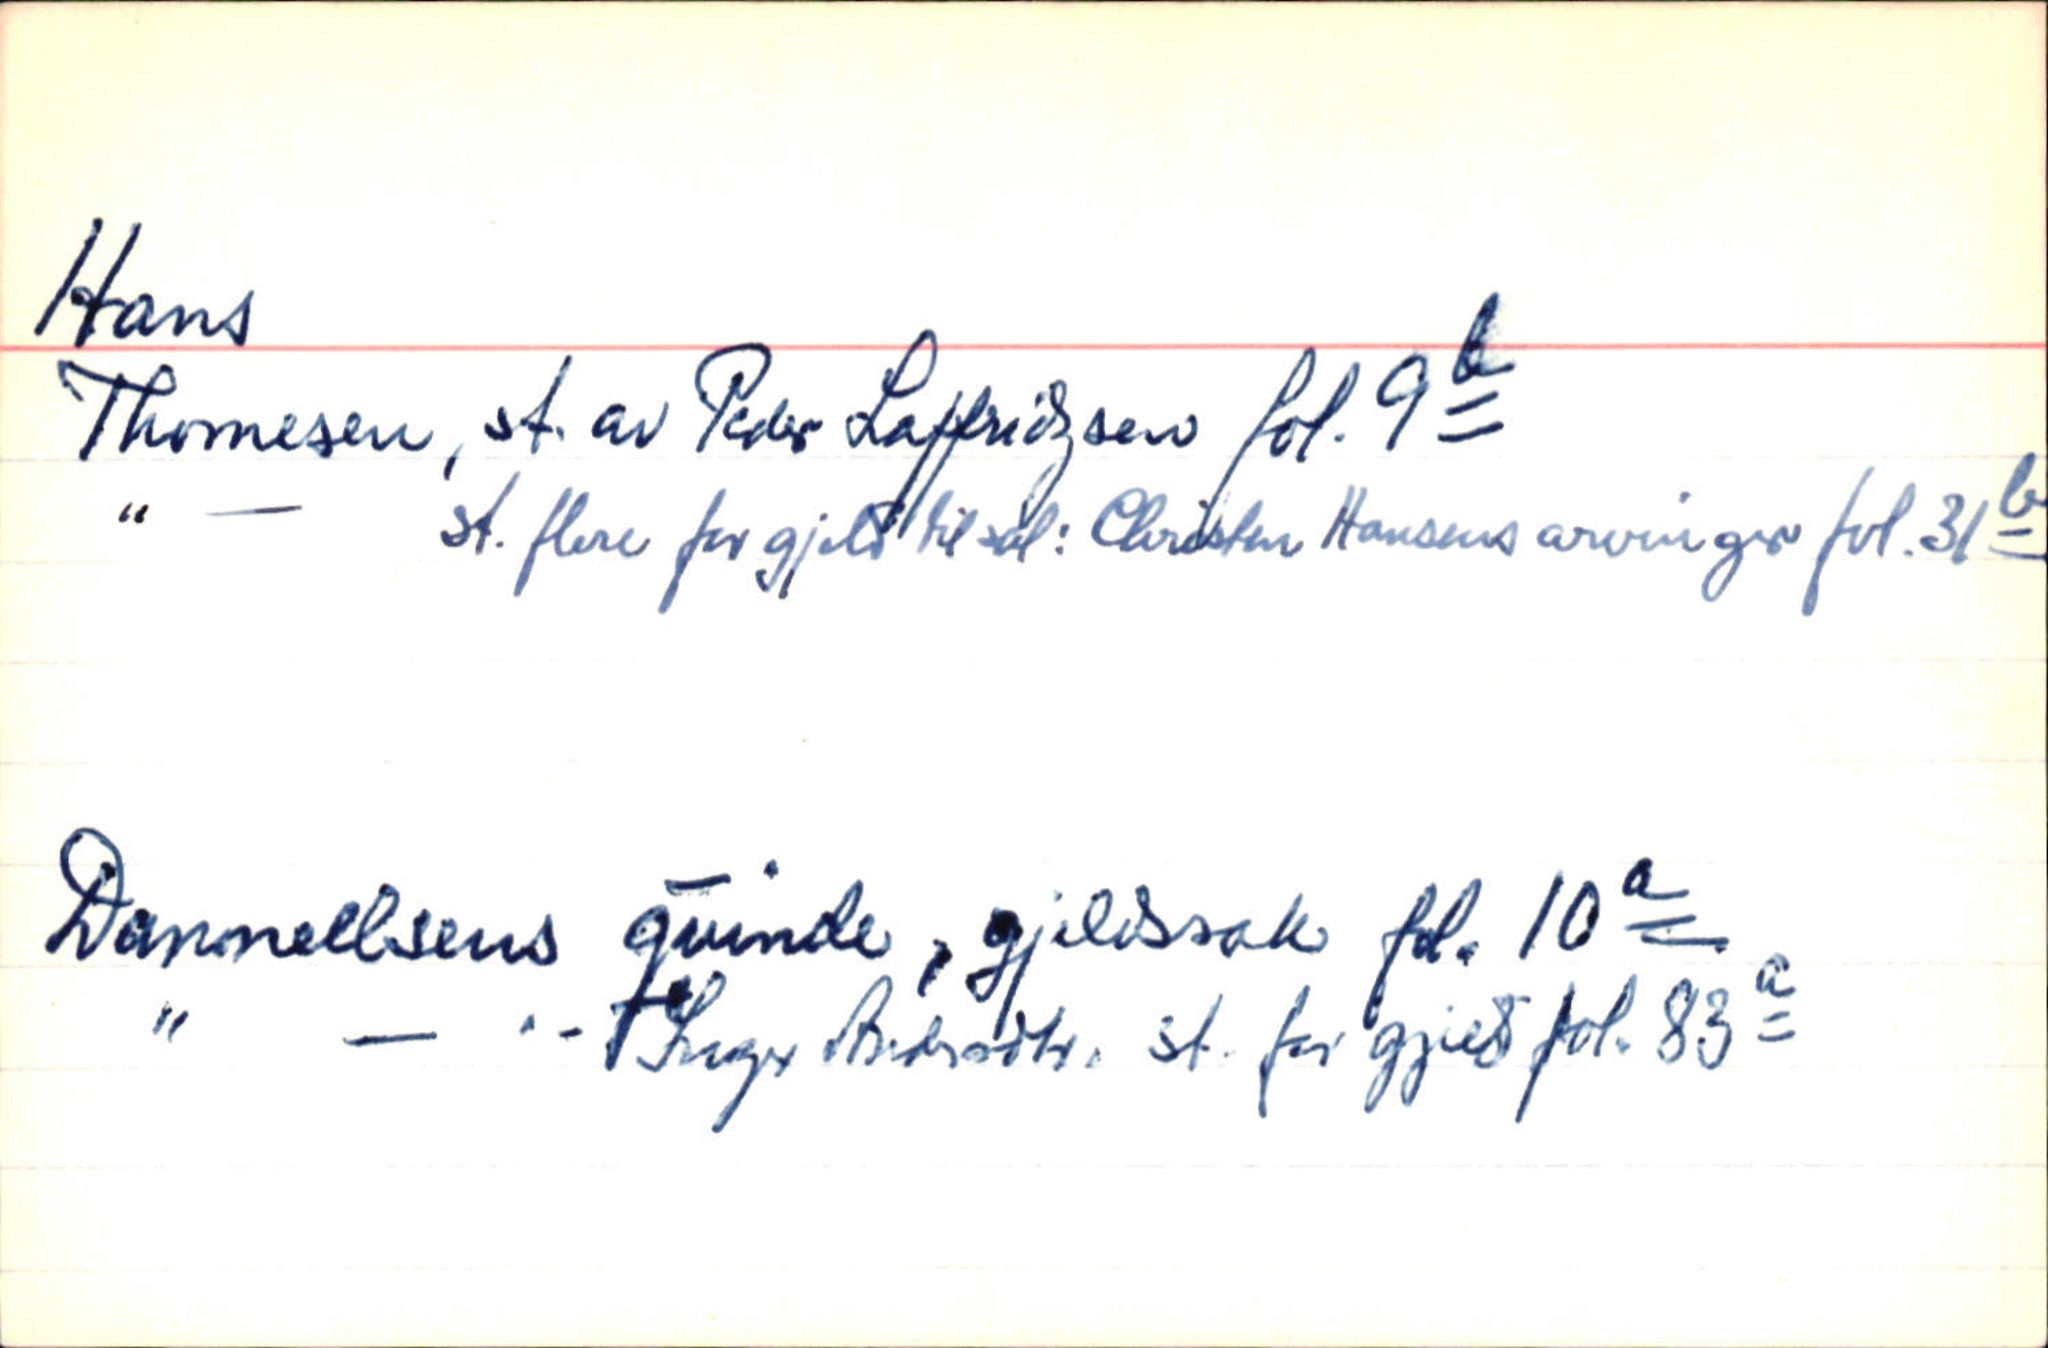 Hans
Thomesen, st. av Peder Laffridzsen fol. 9b
" — st. flere for gjeld til sal: Christen Hansens arvinger fol. 31b
Dannnellsens qvinde, gjeldssak fol. 10a
" — " - Inger st. for gjeld fol. 83a